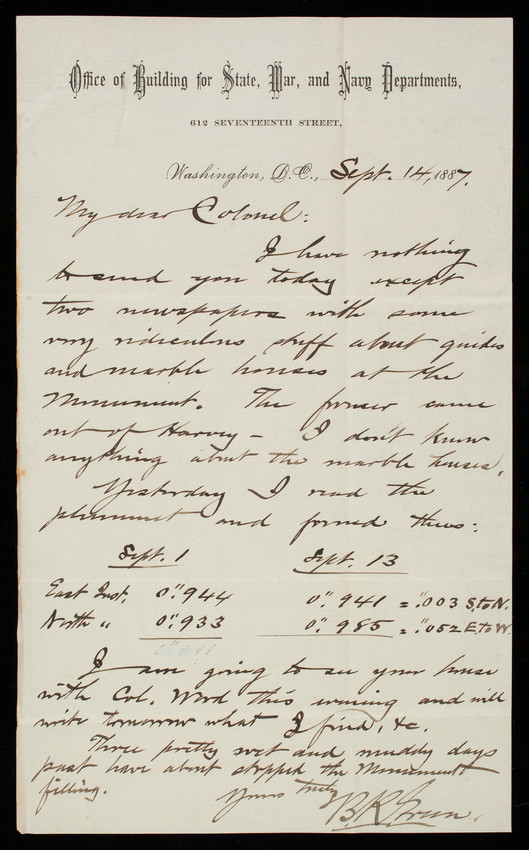 Office of Building for State, War, and Navy Departments,
612 SEVENTEENTH STREET,
Washington, D.C., Sept. 14, 1887.
My dear Colonel:
I have nothing
to send you today except
two newspapers with some
very ridiculous stuff about guides
and marble houses at the
Monument. The former came
out of Harvey – I don't know
anything about the marble houses.
Yesterday I read the
plummet and found thus:
Sept. 1 Sept. 13
East Inst. 0".944 0".941 = ".003 S. to N.
North " 0".933 0".985 = ".052 E. to W.
I am going to see your house
with Col. this evening and will
write tomorrow what I find, &c.
Three pretty wet and muddy days
past have about stopped the Monument
filling.
Yours truly
B.R. Green.